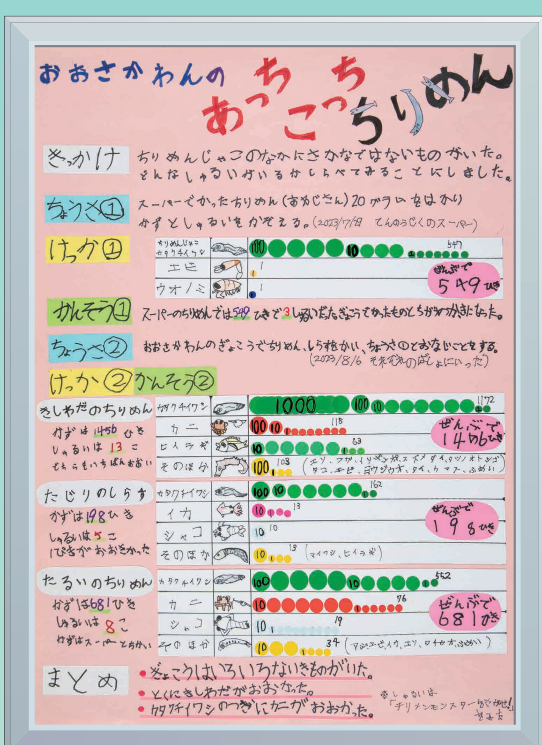 おおさかわんの
あっち
こっち
ちりめん
きっかけ
ちりめんじゃこのなかにさかなではないものがいた。
どんなしゅるいがいるかしらべてみることにしました。
ちょうさ①
スーパーでかったちりめん(おおじさん)20グラムをはかり
かずとしゅるいをかぞえる。(2023/7/ てんのうじくのスーパー)
けっか①
ちりめんじゃこ
カタクチイワシ
100 10 1 547
エビ 1 1
ウオノミ 1
ぜんぶで
549ひき
かんそう①
スーパーのちりめんでは549ひきで3しゅるいだった。ぎょこうでかったものとちがうかきになった。
ちょうさ②
おおさかわんのぎょこうでちりめん、しらすをかい、ちょうさ①とおなじことをする。
(2023/8/6 それぞれのばしょにいった)
けっか② かんそう②
きしわだのちりめん
かずは1456ひき
しゅるいは13こ
どちらもいちばんおおい
カタクチイワシ 1000 100 10 1 1172
カニ 100 10 1 115
ヒイラギ 10 1 63
そのほか 100 1 108
タコ、エビ、ヨウジウオ、タイ、カマス、ふめい)
ぜんぶで
1456ひき
たじりのしらす
かずは198ひき
しゅるいは5こ
1ぴきがおおきかった
カタクチイワシ 100 10 1 162
イカ 10 1 13
シャコ 10 10
そのほか 10 1 13 (マイワシ、ヒイラギ)
ぜんぶで
198ひき
たるいのちりめん
かずは681ひき
しゅるいは8こ
かずはスーパーとちかい
カタクチイワシ 100 10 1 552
カニ 10 1 76
シャコ 10 1 19
そのほか 10 1 34
ぜんぶで
681ひき
まとめ
・ぎょこうはいろいろないきものがいた。
・とくにきしわだがおおかった。
・カタクチイワシのつぎにカニがおおかった。
※しゅるいは
「チリメンモンスターをさがせ!」